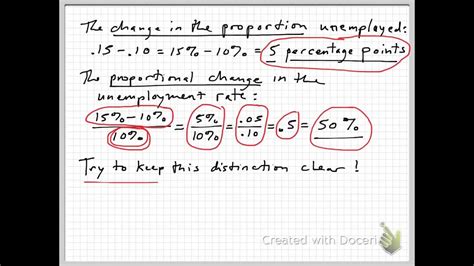 The change in the proportion unemployed:
.15 - .10 = 15% - 10% = 5 percentage points
The proportional change in the
unemployment rate:
15% - 10% / 10% = 5% / 10% = .05 / .10 = .5 = 50%
Try to keep this distinction clear!
Created with Doceri